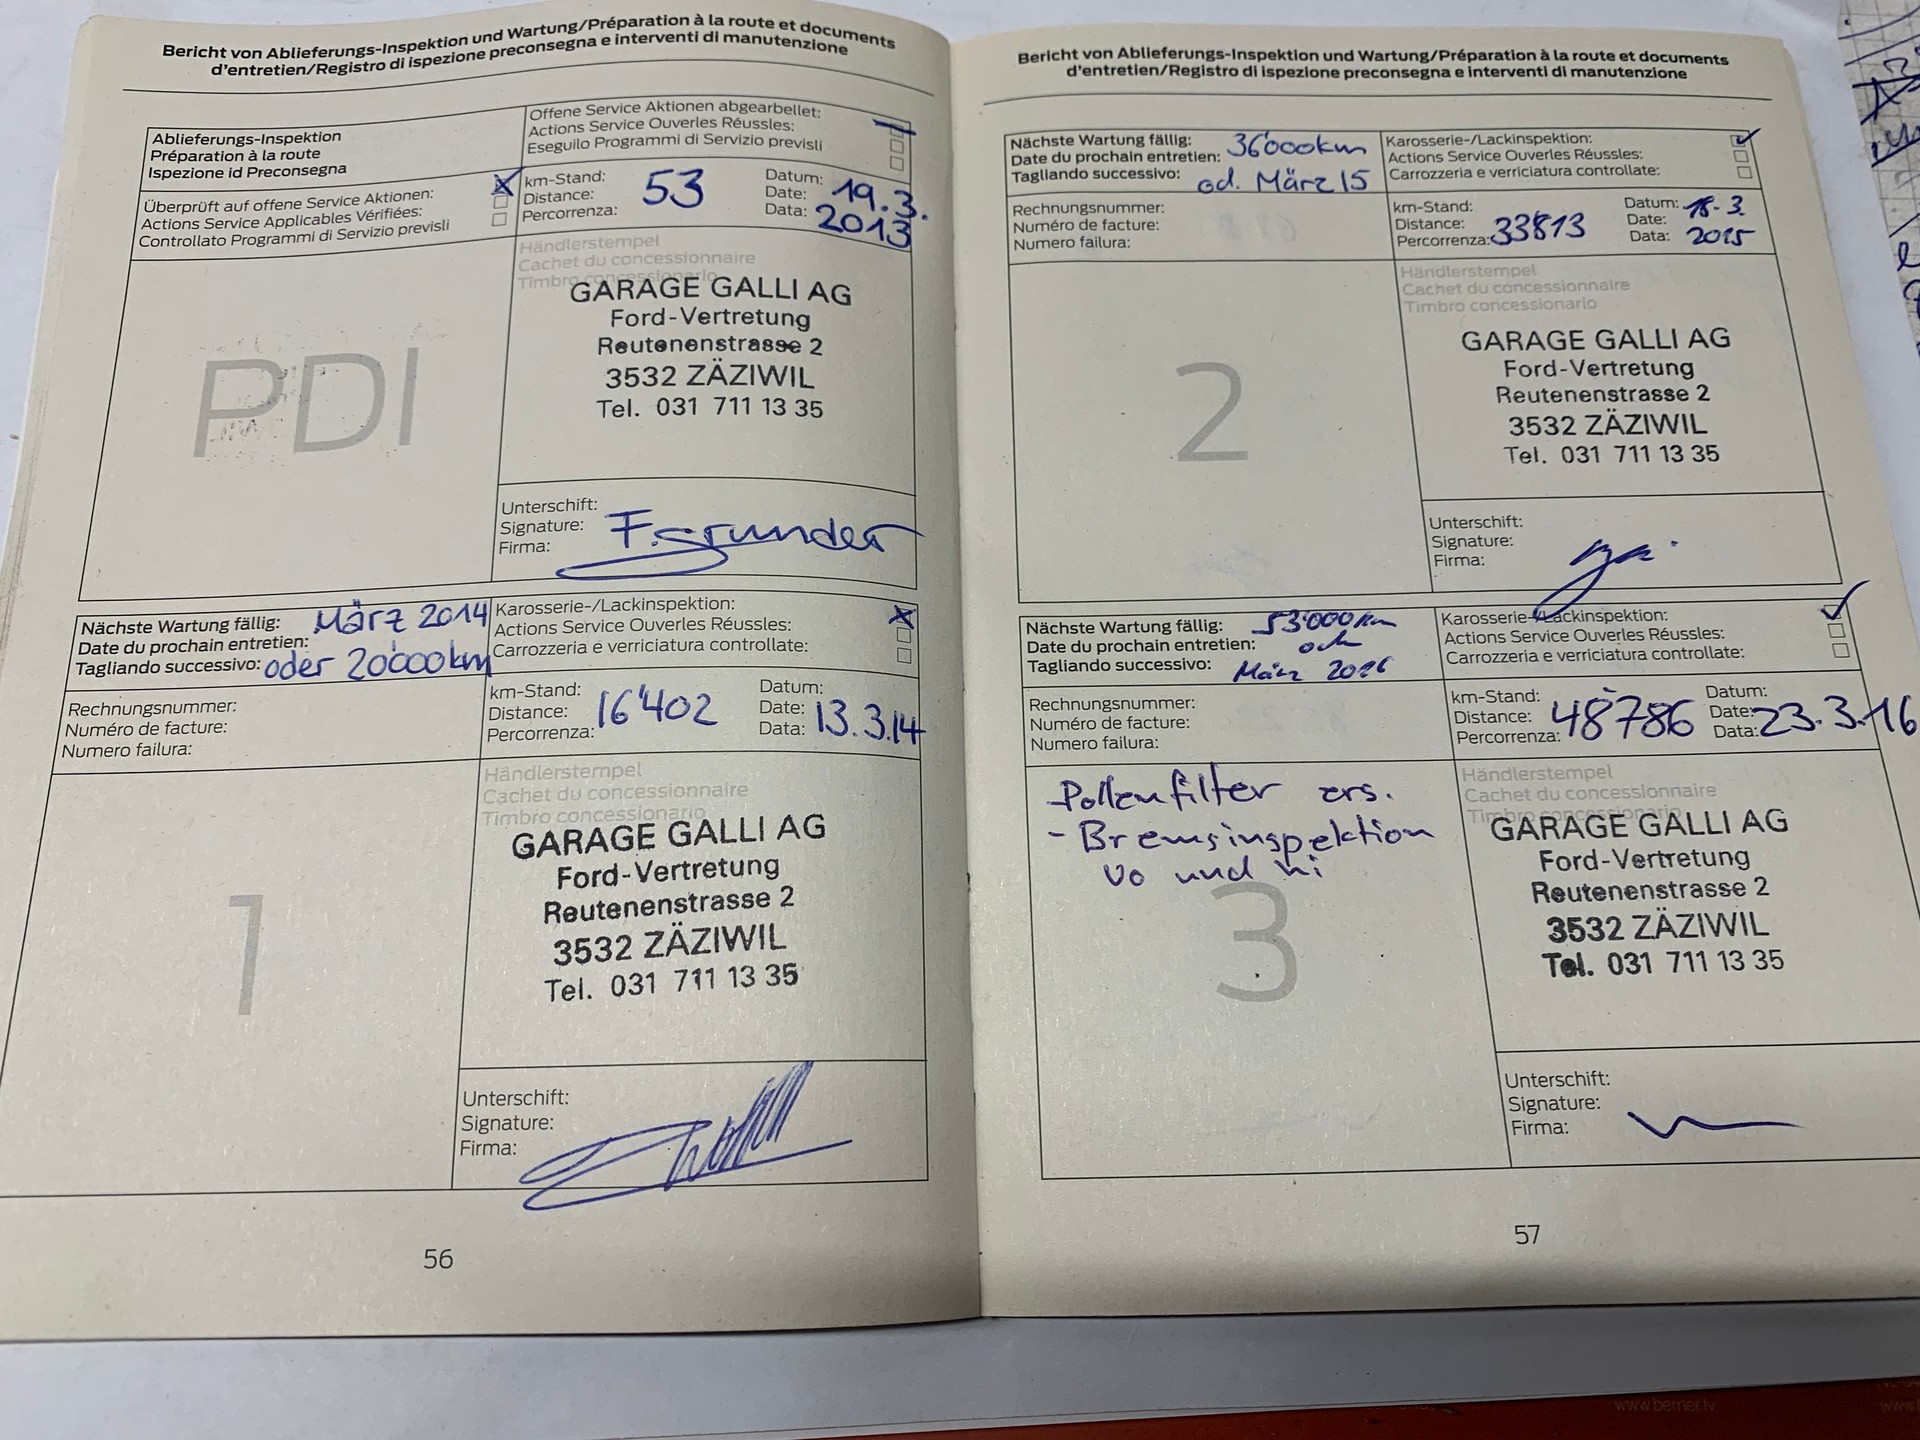 Bericht von Ablieferungs-Inspektion und Wartung/Préparation à la route et documents
d'entretien/Registro di ispezione preconsegna e interventi di manutenzione
Ablieferungs-Inspektion
Préparation à la route
Ispezione id Preconsegna
Offene Service Aktionen abgearbellet:
Actions Service Ouverles Réussles:
Eseguilo Programmi di Servizio previsli
Überprüft auf offene Service Aktionen:
Actions Service Applicables Vérifiées:
Controllato Programmi di Servizio previsli
km-Stand:
Distance:
Percorrenza:
53
Datum:
Date:
Data:
19.3.
2013
PDI
Händlerstempel
Cachet du concessionnaire
Timbro concessionario
GARAGE GALLI AG
Ford-Vertretung
Reutenenstrasse 2
3532 ZÄZIWIL
Tel. 031 711 13 35
Unterschift:
Signature:
Firma:
F. Grunder
Nächste Wartung fällig: März 2014
Date du prochain entretien:
Tagliando successivo: oder 20'000km
Karosserie-/Lackinspektion:
Actions Service Ouverles Réussles:
Carrozzeria e verriciatura controllate:
Rechnungsnummer:
Numéro de facture:
Numero failura:
km-Stand:
Distance:
Percorrenza:
16'402
Datum:
Date:
Data:
13.3.14
1
Händlerstempel
Cachet du concessionnaire
Timbro concessionario
GARAGE GALLI AG
Ford-Vertretung
Reutenenstrasse 2
3532 ZÄZIWIL
Tel. 031 711 13 35
Unterschift:
Signature:
Firma:
56
Bericht von Ablieferungs-Inspektion und Wartung/Préparation à la route et documents
d'entretien/Registro di ispezione preconsegna e interventi di manutenzione
Nächste Wartung fällig: 36'000km
Date du prochain entretien:
Tagliando successivo: od. März 15
Karosserie-/Lackinspektion:
Actions Service Ouverles Réussles:
Carrozzeria e verriciatura controllate:
Rechnungsnummer:
Numéro de facture:
Numero failura:
km-Stand:
Distance:
Percorrenza:
33'813
Datum:
Date:
Data:
18.3.
2015
2
Händlerstempel
Cachet du concessionnaire
Timbro concessionario
GARAGE GALLI AG
Ford-Vertretung
Reutenenstrasse 2
3532 ZÄZIWIL
Tel. 031 711 13 35
Unterschift:
Signature:
Firma:
Nächste Wartung fällig: 53'000km
Date du prochain entretien:
Tagliando successivo: März 2016
Karosserie-/Lackinspektion:
Actions Service Ouverles Réussles:
Carrozzeria e verriciatura controllate:
Rechnungsnummer:
Numéro de facture:
Numero failura:
km-Stand:
Distance:
Percorrenza:
48'786
Datum:
Date:
Data:
23.3.16
-Pollenfilter ers.
- Bremsinspektion
vo und hi
3
Händlerstempel
Cachet du concessionnaire
Timbro concessionario
GARAGE GALLI AG
Ford-Vertretung
Reutenenstrasse 2
3532 ZÄZIWIL
Tel. 031 711 13 35
Unterschift:
Signature:
Firma:
57
www.berner.lv